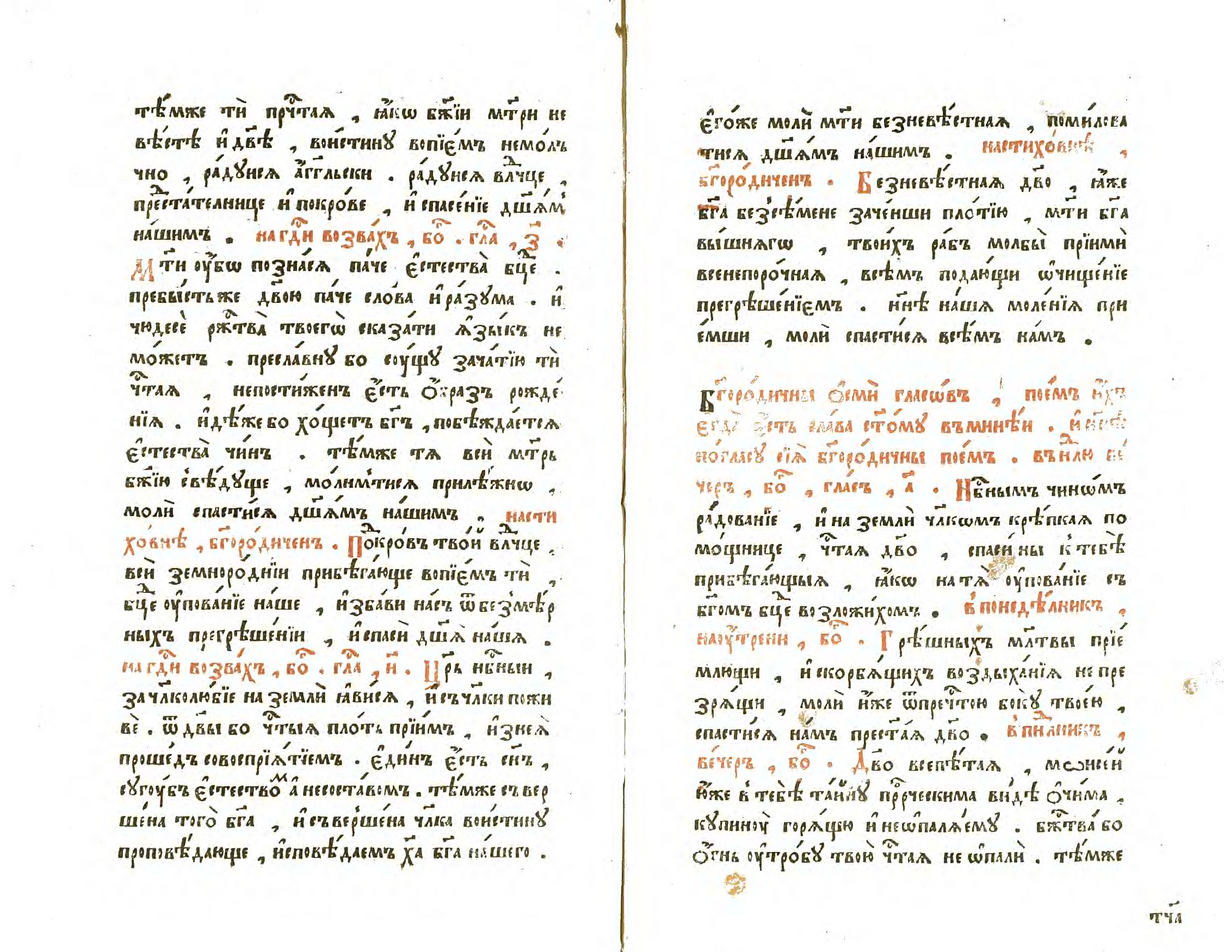 тѣ́мже тѝ прⷭ҇таѧ , ꙗ҆́кѡ бж҃їи мт҃ри не
вѣ́стѣ и҆ дв҃ѣ , вои́стинꙋ вопїе́мъ немо́лъ
чно , ра́дꙋисѧ а҆́гг҃льски . ра́дꙋисѧ влⷣчце ,
преⷭ҇та́телнице и҆ покро́ве , и҆ спасе́нїе дш҃ѧ́мъ
на́шимъ . на гдⷭ҇и возва́хъ , боⷢ҇ . глаⷭ҇ , з҃ .
Мт҃и ᲂу҆́бѡ позна́сѧ па́че є҆стества̀ бцⷣе .
пребы́стьже дв҃ою па́че сло́ва и҆ ра́зꙋма . и҆
чюдесѐ ржⷭ҇тва̀ твоегѡ̀ сказа́ти ѧ҆зы́къ не
мо́жетъ . пресла́внꙋ бо сꙋ́щꙋ зача́тїю тѝ
чⷭ҇таѧ , непости́женъ є҆́сть ѻ҆́бразъ рожде́
нїѧ . и҆дѣ́же бо хо́щетъ бг҃ъ , побѣжда́етсѧ
є҆стества̀ чи́нъ . тѣ́мже тѧ всѝ мт҃рь
бж҃їю свѣ́дꙋще , мо́лимтисѧ прилѣ́жнѡ ,
молѝ спасти́сѧ дш҃ѧ́мъ на́шимъ . насти
хо́внѣ , бг҃оро́диченъ . Покро́въ тво́й влⷣчце ,
всѝ земноро́днїи прибѣга́юще вопїе́мъ тѝ ,
бцⷣе ᲂу҆пова́нїе на́ше , и҆зба́ви на́съ ѿ безмѣ́р
ныхъ прегрѣше́нїи , и҆ спасѝ дш҃ѧ̀ на́шѧ .
на гдⷭ҇и возва́хъ , боⷢ҇ . глаⷭ҇ , и҃ . Цр҃ь нбⷭ҇ныи ,
за чл҃колю́бїе на землѝ ꙗ҆ви́сѧ , и҆ съ чл҃ки пожи
вѐ . ѿ дв҃ы бо чⷭ҇тыѧ пло́ть прїи́мъ , и҆ з неѧ̀
проше́дъ совоспрїѧ́тїемъ . є҆ди́нъ є҆́сть сн҃ъ ,
сꙋгꙋ́бъ є҆стество́мъ а҆ не соста́вомъ . тѣ́мже съ вер
ше́на того̀ бг҃а , и҆ съ верше́на чл҃ка вои́стинꙋ
проповѣ́дающе , и҆сповѣ́даемъ хⷭ҇а бг҃а на́шего .
є҆го́же молѝ мт҃и безневѣ́стнаѧ , поми́лова
тисѧ дш҃ѧ́мъ на́шимъ . настихо́внѣ ,
бг҃оро́диченъ . Безневѣ́стнаѧ дв҃о , ꙗ҆́же
бг҃а безсѣ́мене заче́нши пло́тїю , мт҃и бг҃а
вы́шнѧгѡ , твои́хъ ра́бъ молбы̀ прїимѝ
всенепоро́чнаѧ , всѣ́мъ подаю́щи ѡ҆чище́нїе
прегрѣше́нїемъ . нн҃ѣ на́шѧ моле́нїѧ при
е́мши , молѝ спасти́сѧ всѣ́мъ на́мъ .
Бг҃оро́дичны ѻ҆смѝ гласѡ́въ , пое́мъ и҆́хъ
є҆гда̀ є҆́сть сла́ва ст҃о́мꙋ въ мине́и .
по гла́сꙋ сїѧ̀ бг҃оро́дичны пое́мъ . въ нⷣлю ве́
черъ , боⷢ҇ , гла́съ , а҃ . Нбⷭ҇нымъ чинѡ́мъ
ра́дованїе , и҆ на землѝ чл҃кѡмъ крѣ́пкаѧ по
мо́щнице , чⷭ҇таѧ дв҃о , спасѝ ны к тебѣ̀
прибѣга́ющыѧ , ꙗ҆́кѡ на тѧ̀ ᲂу҆пова́нїе съ
бг҃омъ бцⷣе возложи́хомъ . в понедѣ́лникъ ,
на ᲂу҆́трени , боⷢ҇ . Грѣ́шныхъ мл҃твы прїе́
млющи , и҆ скорбѧ́щихъ воздыха́нїѧ не пре
зрѧ́щи , молѝ и҆́же ѿ пречⷭ҇тою бокꙋ̀ твоею̀ ,
спасти́сѧ на́мъ престаѧ дв҃о . в пн҃лникъ ,
ве́черъ , боⷢ҇ . Дв҃о всепѣ́таѧ , мѡѵсе́й
ю҆́же в тебѣ̀ та́йнꙋ прⷪ҇рческима ви́дѣ ѻ҆чи́ма ,
кꙋпинꙋ̀ горѧ́щꙋю и҆ неѡ҆палѧ́емꙋ . бжⷭ҇тва̀ бо
ѻ҆́гнь ᲂу҆тро́бꙋ твою̀ чⷭ҇таѧ не ѡ҆палѝ . тѣ́мже
тч҃а